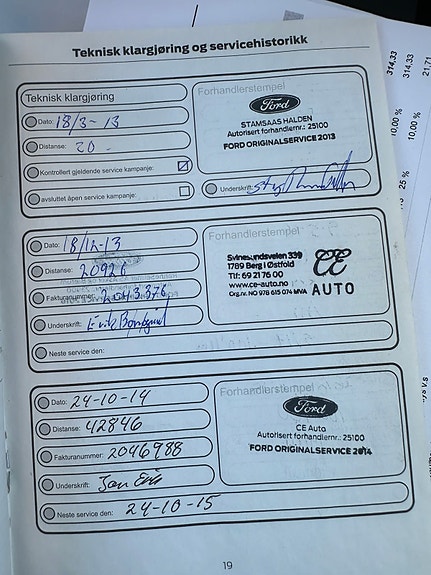 Teknisk klargjøring og servicehistorikk
Teknisk klargjøring
Forhandlerstempel
Dato: 18/3-13
Ford
STAMSAAS HALDEN
Autorisert forhandlernr.: 25100
FORD ORIGINALSERVICE 2013
Distanse: 20
Kontrollert gjeldende service kampanje:
avsluttet åpen service kampanje:
Underskrift:
Dato: 18/12-13
Forhandlerstempel
Distanse: 20926
Svinesundsveien 339
1789 Berg i Østfold
Tlf: 69 21 76 00
www.ce-auto.no
Org.nr. NO 978 615 074 MVA
CE AUTO
Fakturanummer: 2043376
Underskrift:
Neste service den:
Dato: 24-10-14
Forhandlerstempel
Ford
CE Auto
Autorisert forhandlernr.: 25100
FORD ORIGINALSERVICE 2014
Distanse: 42846
Fakturanummer: 2046988
Underskrift: Jan
Neste service den: 24-10-15
19
314,33
314,33
21,71
10,00 %
10,00 %
25 %